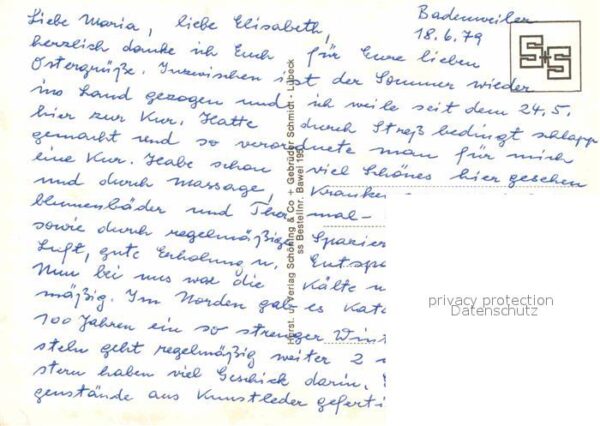 Badenweiler
18.6.79
Liebe Maria, liebe Elisabeth,
herzlich danke ich Euch für Eure lieben
Ostergrüße. Inzwischen ist der Sommer wieder
ins Land gezogen und ich weile seit dem 24.5.
hier zur Kur. Hatte durch Streß bedingt schlapp
gemacht und so verordnete man für mich
eine Kur. Habe schon viel Schönes hier gesehen
und durch Massage, Kranken
blumenbäder und Ther mal-
sowie durch regelmäßige Spazier
Luft, gute Erholung u. Entspa
Nun bei uns war die Kälte
mäßig. Im Norden gab es Kata
100 Jahren ein so strenger Wint
steln geht regelmäßig weiter 2
stern haben viel Geschick darin.
genstände aus Kunstleder geferti
S+S
Horst. u. Verlag Schöning & Co + Gebrüder Schmidt - Lübeck
ss Bestellnr. Bawei 195
privacy protection
Datenschutz